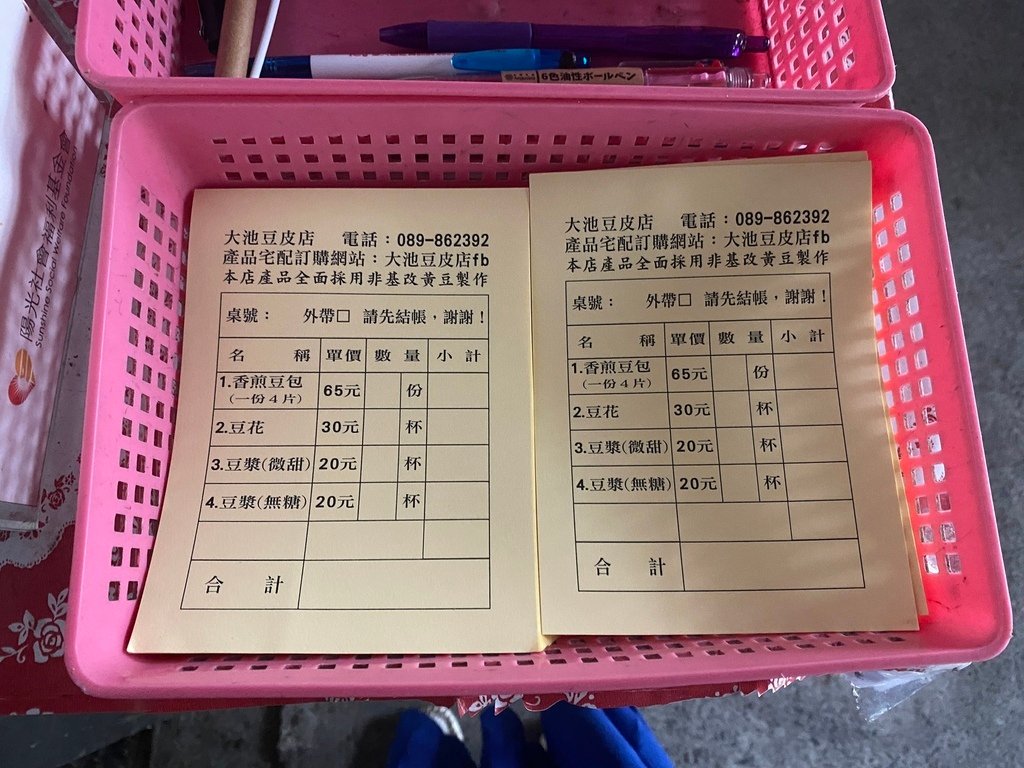 6色油性ボールペン
陽光社會福利基金會
Sunshine Social Welfare Foundation
大池豆皮店 電話：089-862392
產品宅配訂購網站：大池豆皮店fb
本店產品全面採用非基改黃豆製作
桌號： 外帶□ 請先結帳，謝謝！
名 稱 單價 數 量 小 計
1.香煎豆包 65元 份
(一份4片)
2.豆花 30元 杯
3.豆漿(微甜) 20元 杯
4.豆漿(無糖) 20元 杯
合 計
大池豆皮店 電話：089-862392
產品宅配訂購網站：大池豆皮店fb
本店產品全面採用非基改黃豆製作
桌號： 外帶□ 請先結帳，謝謝！
名 稱 單價 數 量 小 計
1.香煎豆包 65元 份
(一份4片)
2.豆花 30元 杯
3.豆漿(微甜) 20元 杯
4.豆漿(無糖) 20元 杯
合 計